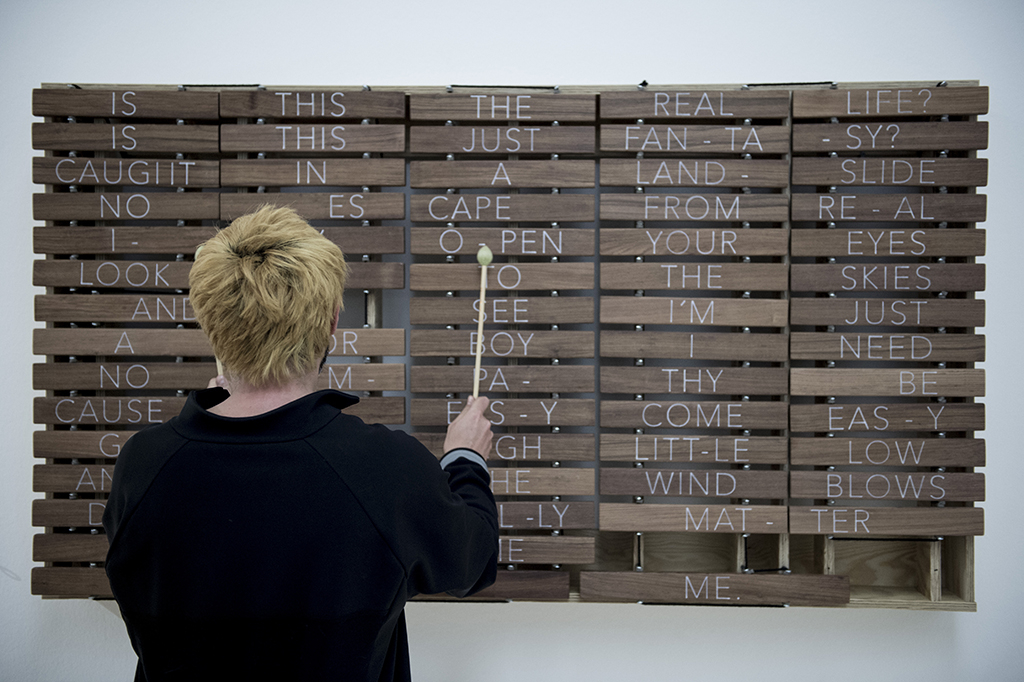 IS THIS THE REAL LIFE?
IS THIS JUST FAN - TA - SY?
CAUGHT IN A LAND - SLIDE
NO ES CAPE FROM RE - AL
I - O - PEN YOUR EYES
LOOK TO THE SKIES
AND SEE I'M JUST
A OR BOY I NEED
NO M - PA - THY BE
CAUSE EAS - Y COME EAS - Y
GH LITT-LE LOW
AN HE WIND BLOWS
L -LY MAT - TER
ME.